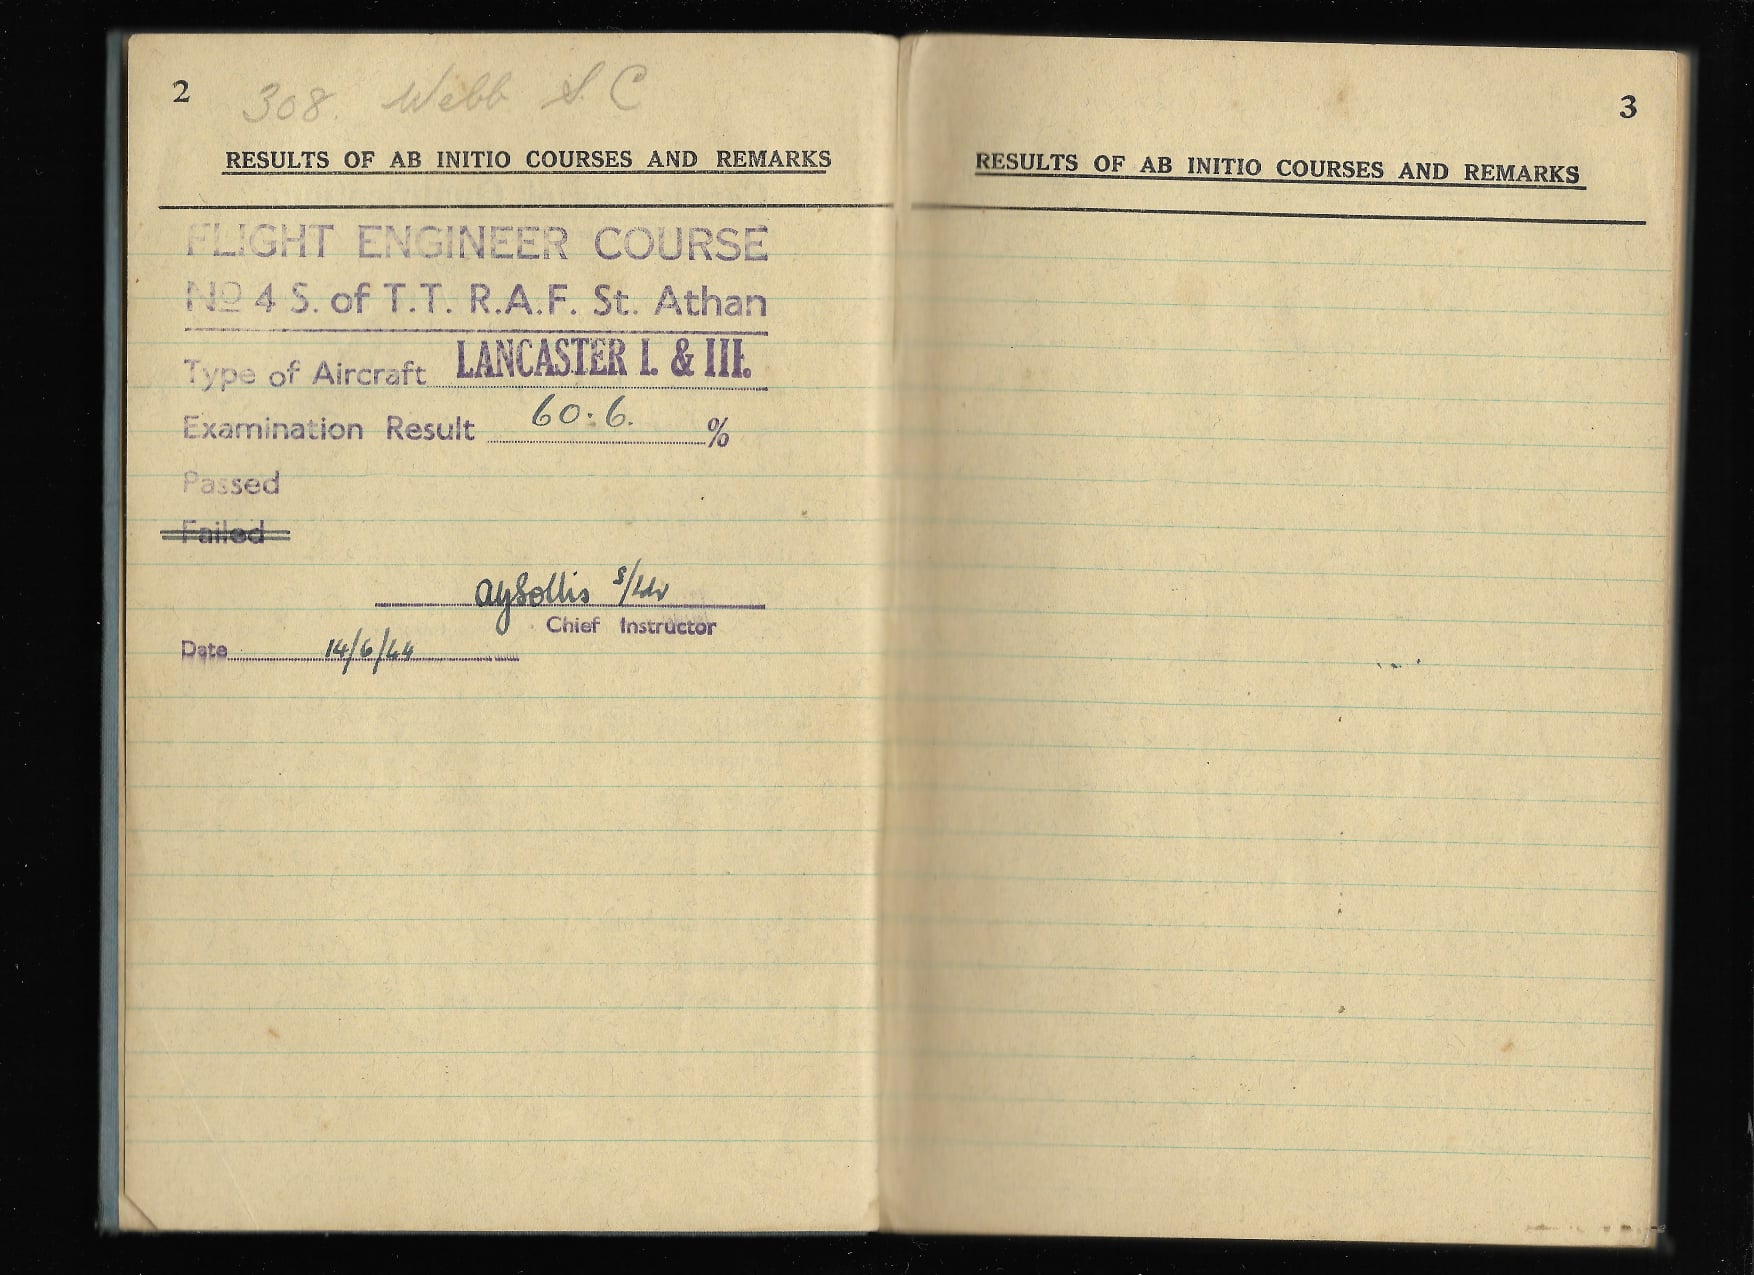 2 308. Webb S. C
RESULTS OF AB INITIO COURSES AND REMARKS
FLIGHT ENGINEER COURSE
No 4 S. of T.T. R.A.F. St. Athan
Type of Aircraft LANCASTER I. & III.
Examination Result 60.6. %
Passed
Failed
S/Ldr
Chief Instructor
Date 14/6/44
3
RESULTS OF AB INITIO COURSES AND REMARKS